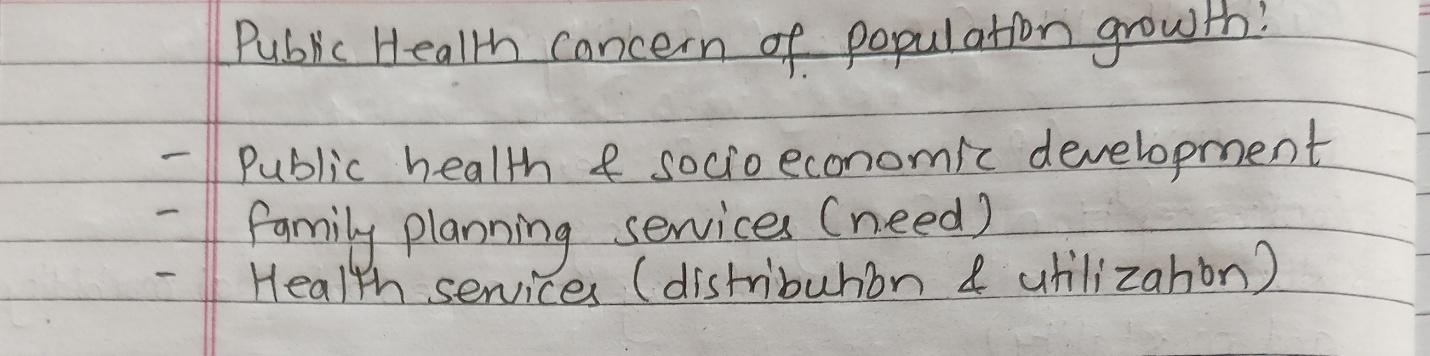 Public Health concern of population growth:
- Public health & socio economic development
- family planning services (need)
- Health services (distribution & utilization)